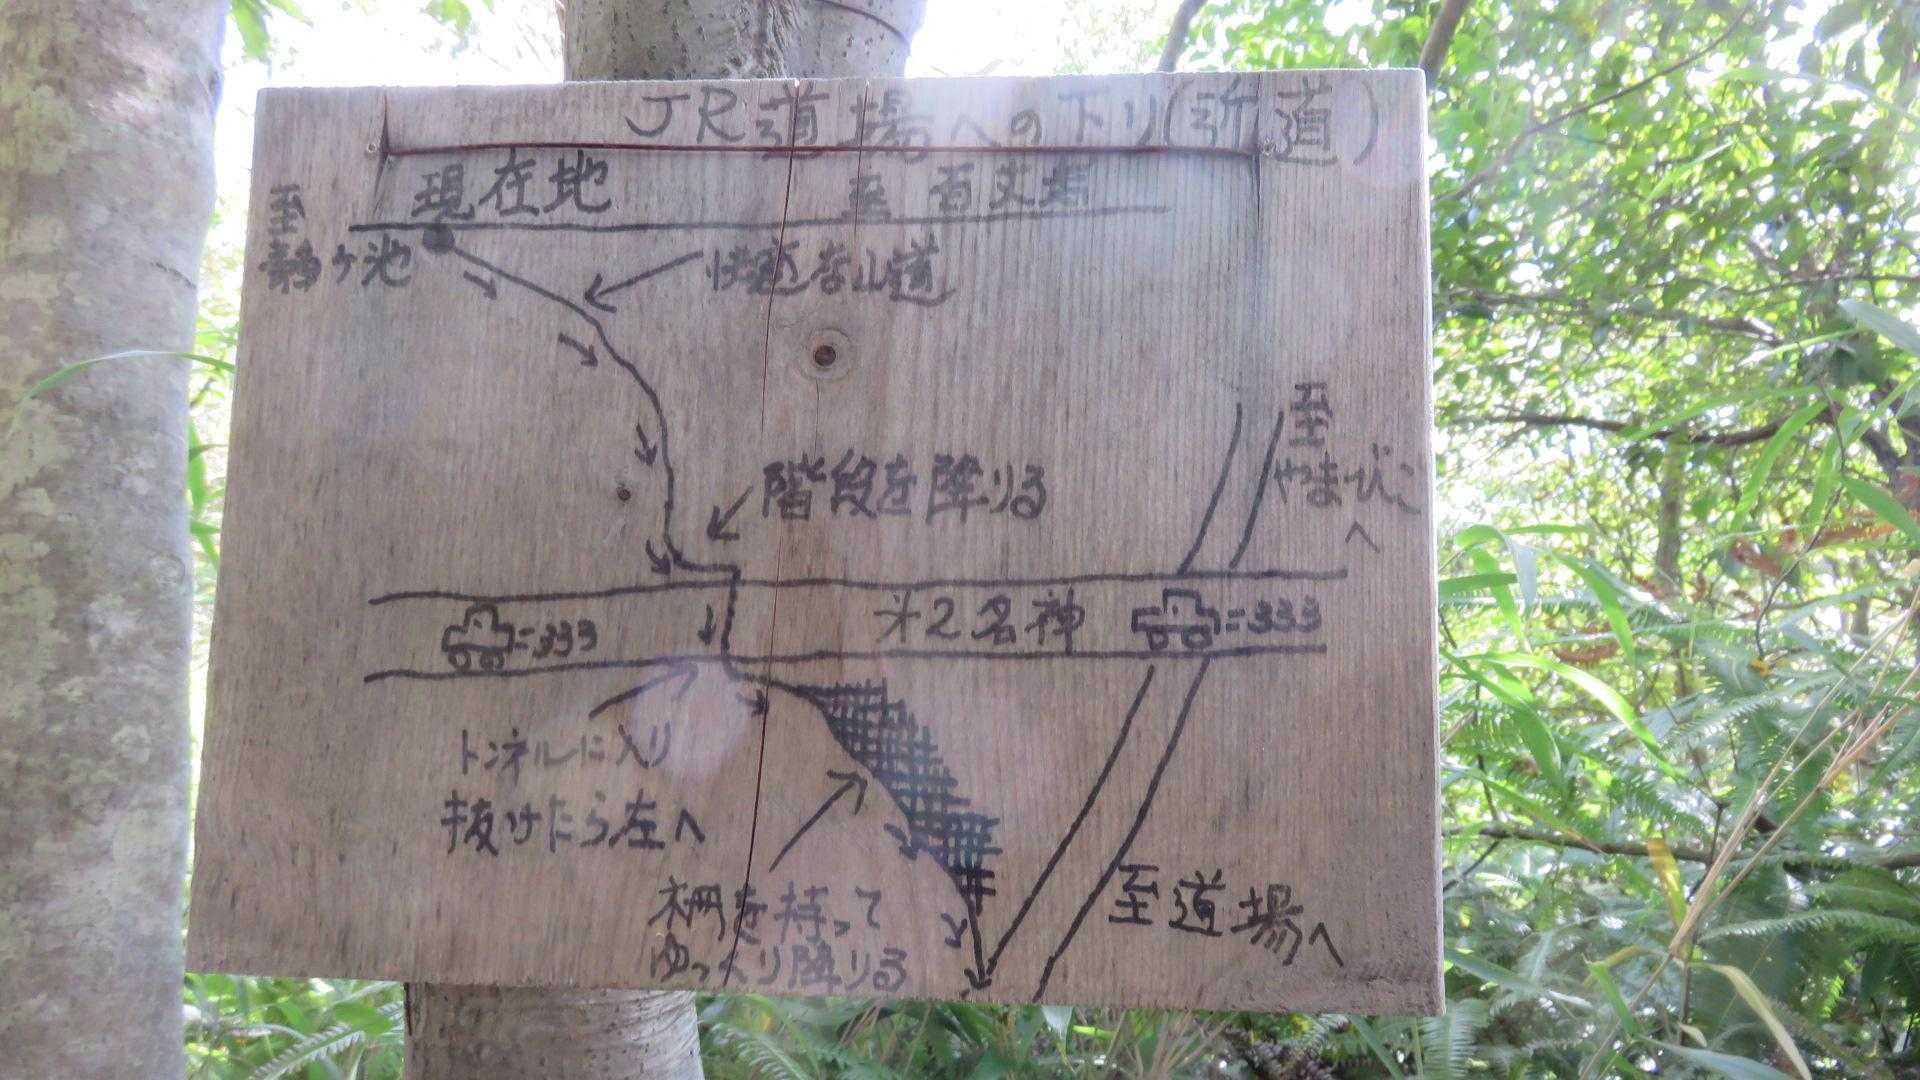 JR道場への下り(近道)
現在地
至 百丈場
至
静ヶ池
快適な山道
至
やまびこ
へ
階段を降りる
=333
才2名神
=333
トンネルに入り
抜けたら左へ
柵を持って
ゆっくり降りる
至道場へ